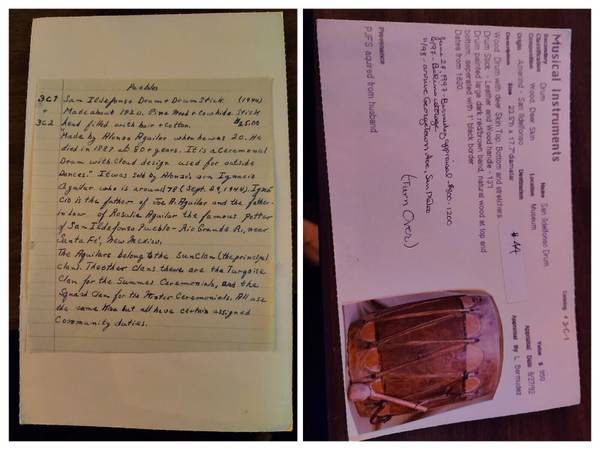 Pueblos
3C1 San Ildefonso Drum + Drum Stick. (1944)
+ Made about 1820. Pine Wood + Cowhide. Stick
3C2 head filled with hair + cotton. $25.00
"Made by Alonzo Aguilar when he was 20. He
died in 1887 at 80+ years. It is a Ceremonial
Drum with Cloud design used for outside
Dances." It was sold by Alonzo's son Ignacio
Aguilar who is around 78 (Sept. 29, 1944). Igna
cio is the father of Joe A. Aguilar and the father-
in law of Rosalie Aguilar the famous Potter
of San Ildefonso Pueblo - Rio Grande R., near
Santa Fé, New Mexico.
The Aguilars belong to the Sun Clan (the principal
clan). The other Clans there are the Turqoise
Clan for the Summer Ceremonials, and the
Squash Clan for the Winter Ceremonials. All use
the same Kiva but all have certain assigned
Community duties.
Musical Instruments
Catalog # 3-C-1
Secondary
Classification Drum
Name San Ildefonso Drum
Value $ 950
Composition Wood, Deer Skin
Location Museum
Appraisal Date 8/27/92
Origin Amerind - San Ildefonso
Destination
Appraisal By L. Bermudez
Description Size 23.5"h x 17.7"diameter
# 44
Wood Drum with deer Skin Top, Bottom and stretchers
Drum Stick - Leather and Wood handle - 13"l
Drum painted large dark red/brown band, natural wood at top and
bottom, seperated with 1" black border
Dates from 1820
June 28, 1997 - Bermudez appraisal - $900-1200
6/97 - Bekins storage
11/98 - arrive Georgetown Ave, San Mateo
(Turn Over)
Provenance
PJFS aquired from husband